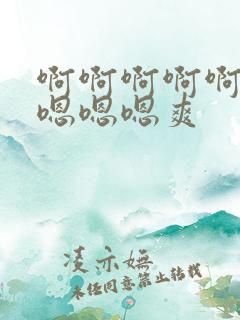 啊啊啊啊啊
嗯嗯嗯爽
凌亦妩
未经同意禁止转载